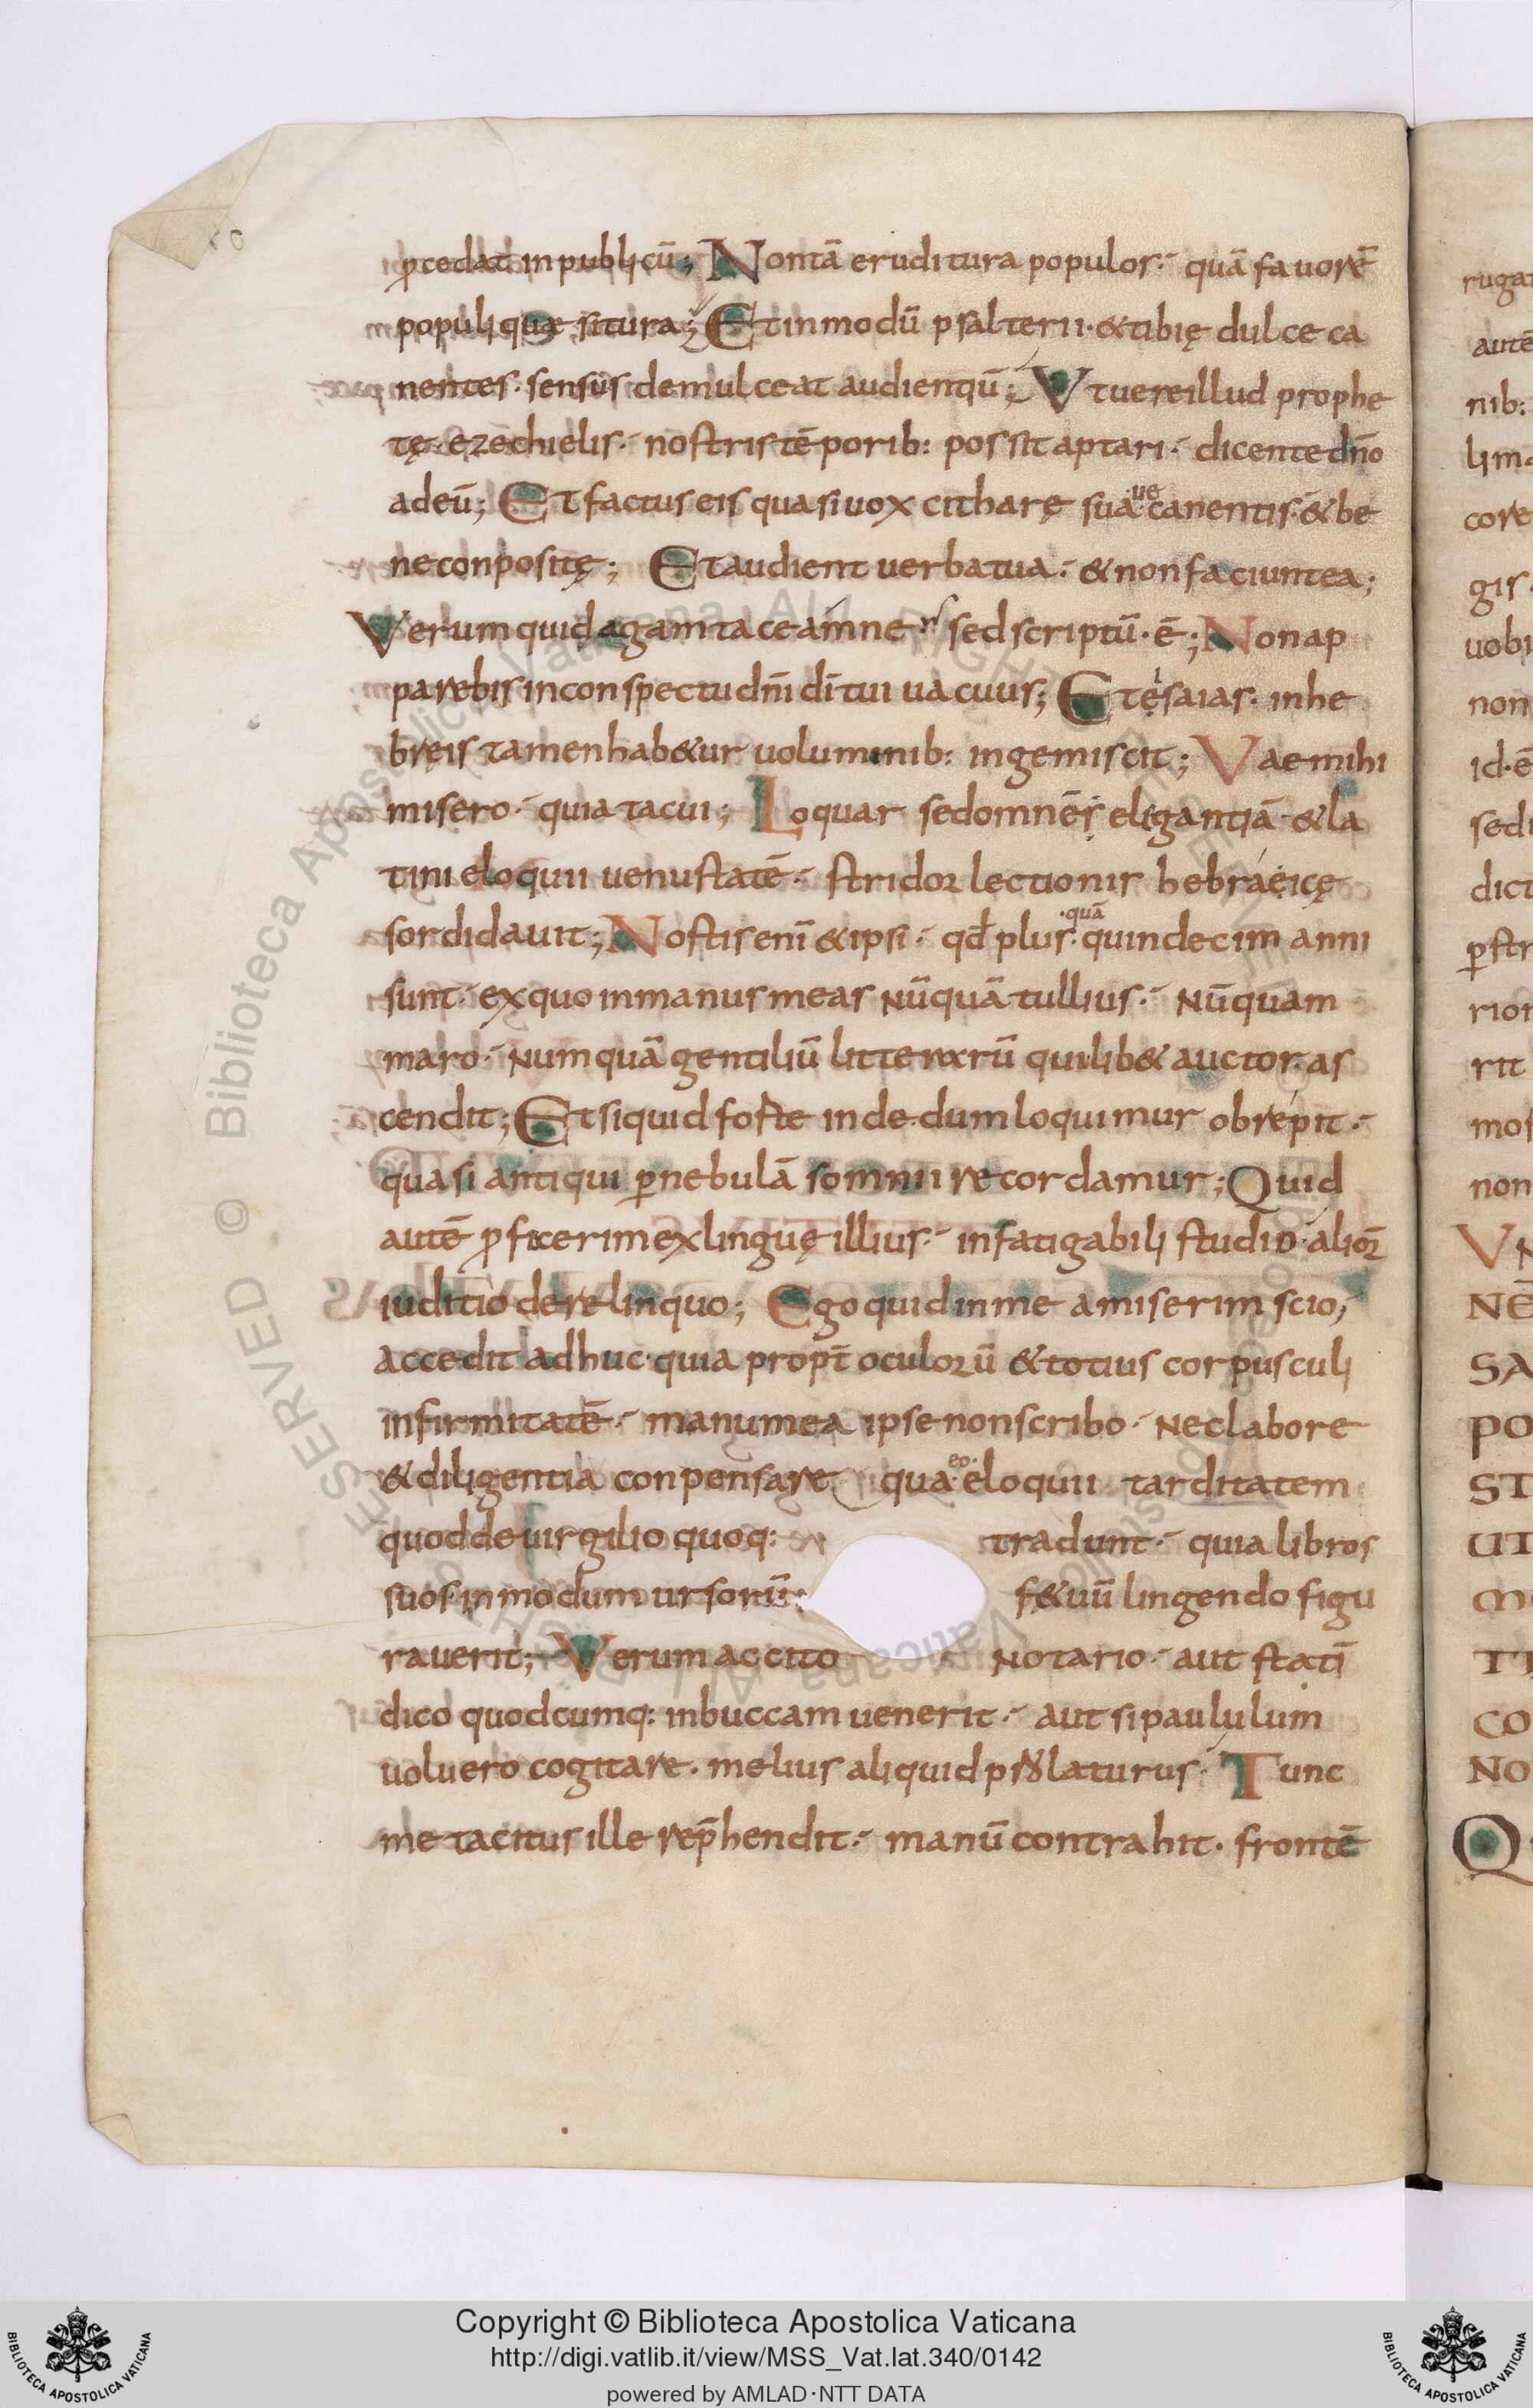 ꝓcedat in publicū; Non tā eruditura populos· quā fauorē
populi quæsitura; Et in modū psalterii· & tibię dulce ca
nentes· sensus demulceat audientiū; Vt uere illud prophe
tę ezechielis· nostris tēporib: possit aptari· dicente dn̄o
ad eū; Et factus eis quasi uox citharę suaue canentis· & be
ne conpositę; Et audient uerba tua· & non faciunt ea;
Verum quid agam taceamne? sed scriptū· ē; Non ap
parebis in conspectu dn̄i dī tui uacuus; Et esaias· in he
bręis tamen hab&ur uoluminib: ingemiscit; Vae mihi
misero· quia tacui; Loquar sed omnēs elegantiā· & la
tini eloquii uenustatē· stridor lectionis hebraeicę
sordidauit; Nostis enī & ipsi· qđ plus·quā· quindecim anni
sunt· ex quo in manus meas nūquā tullius· nūquam
maro· numquā gentiliū litterarū quilib& auctor· as
cendit; Et si quid foste inde dum loquimur obrepit·
quasi antiqui ꝑ nebulā somnii recordamur; Quid
autē ꝓficerim ex linguę illius· infatigabili studio· alioꝝ
iuditio derelinquo; Ego quid in me amiserim scio;
accedit adhuc· quia propt̄ oculorū & totius corpusculi
infirmitatē· manu mea ipse non scribo· nec labore
& diligentia conpensare queo eloquii tarditatem
quod de uirgilio quoq: tradunt· quia libros
suos· in modum ursorū· f&uū lingendo figu
rauerit; Verum accito notario· aut statī
dico quodcumq: in buccam uenerit· aut si paululum
uoluero cogitare· melius aliquid prolaturus· Tunc
me tacitus ille rep̄hendit· manū contrahit· frontē
Copyright © Biblioteca Apostolica Vaticana
http://digi.vatlib.it/view/MSS_Vat.lat.340/0142
powered by AMLAD·NTT DATA